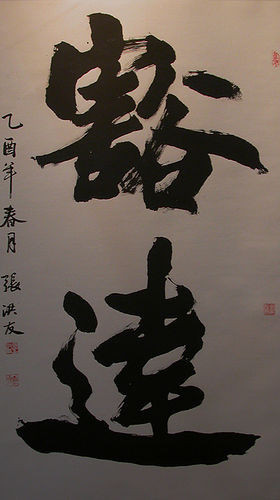 豁達
乙酉年春月 張洪友